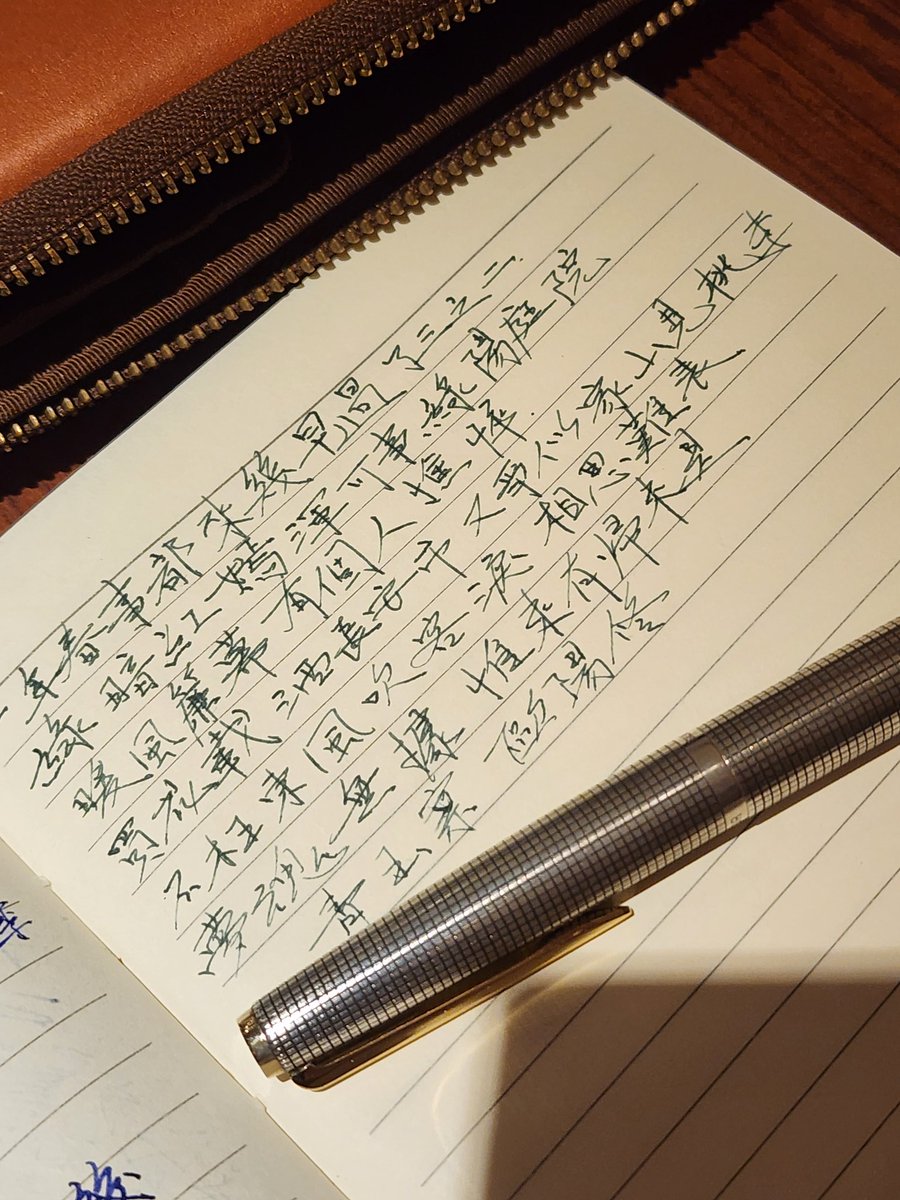 一年春事都來幾早過了三之二
綠暗紅嫣渾可事綠陽庭院
暖風簾幕有個人憔悴
買花載酒長安市又爭似家山見桃李
不枉東風吹客淚相思難表
夢魂無據惟來有歸來是
青玉案 歐陽修